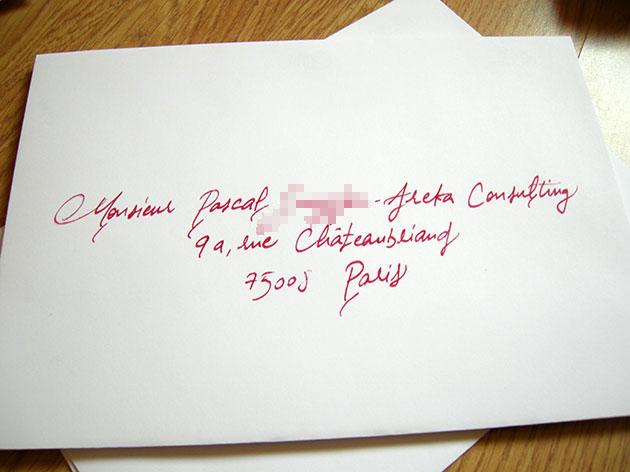 Monsieur Pascal - Areka Consulting
9a, rue Châteaubriand
75005 Paris